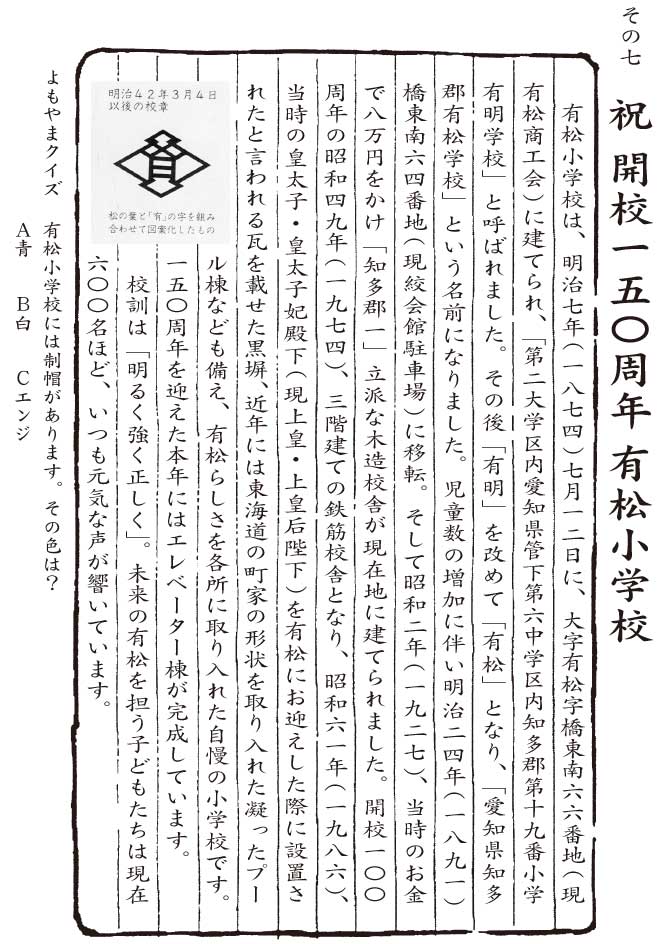 その七
祝 開校一五〇周年 有松小学校
有松小学校は、明治七年(一八七四)七月一二日に、大字有松字橋東南六六番地(現
有松商工会)に建てられ、「第二大学区内愛知県管下第六中学区内知多郡第十九番小学
有明学校」と呼ばれました。その後「有明」を改めて「有松」となり、「愛知県知多
郡有松学校」という名前になりました。児童数の増加に伴い明治二四年(一八九一)
橋東南六四番地(現絞会館駐車場)に移転。そして昭和二年(一九二七)、当時のお金
で八万円をかけ「知多郡一」立派な木造校舎が現在地に建てられました。開校一〇〇
周年の昭和四九年(一九七四)、三階建ての鉄筋校舎となり、昭和六一年(一九八六)、
当時の皇太子・皇太子妃殿下(現上皇・上皇后陛下)を有松にお迎えした際に設置さ
れたと言われる瓦を載せた黒塀、近年には東海道の町家の形状を取り入れた凝ったプー
ル棟なども備え、有松らしさを各所に取り入れた自慢の小学校です。
一五〇周年を迎えた本年にはエレベーター棟が完成しています。
校訓は「明るく強く正しく」。未来の有松を担う子どもたちは現在
六〇〇名ほど、いつも元気な声が響いています。
明治42年3月4日
以後の校章
松の葉と「有」の字を組み
合わせて図案化したもの
よもやまクイズ 有松小学校には制帽があります。その色は?
A青 B白 Cエンジ